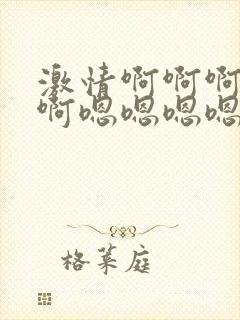 激情啊啊啊
啊嗯嗯嗯嗯
格莱庭